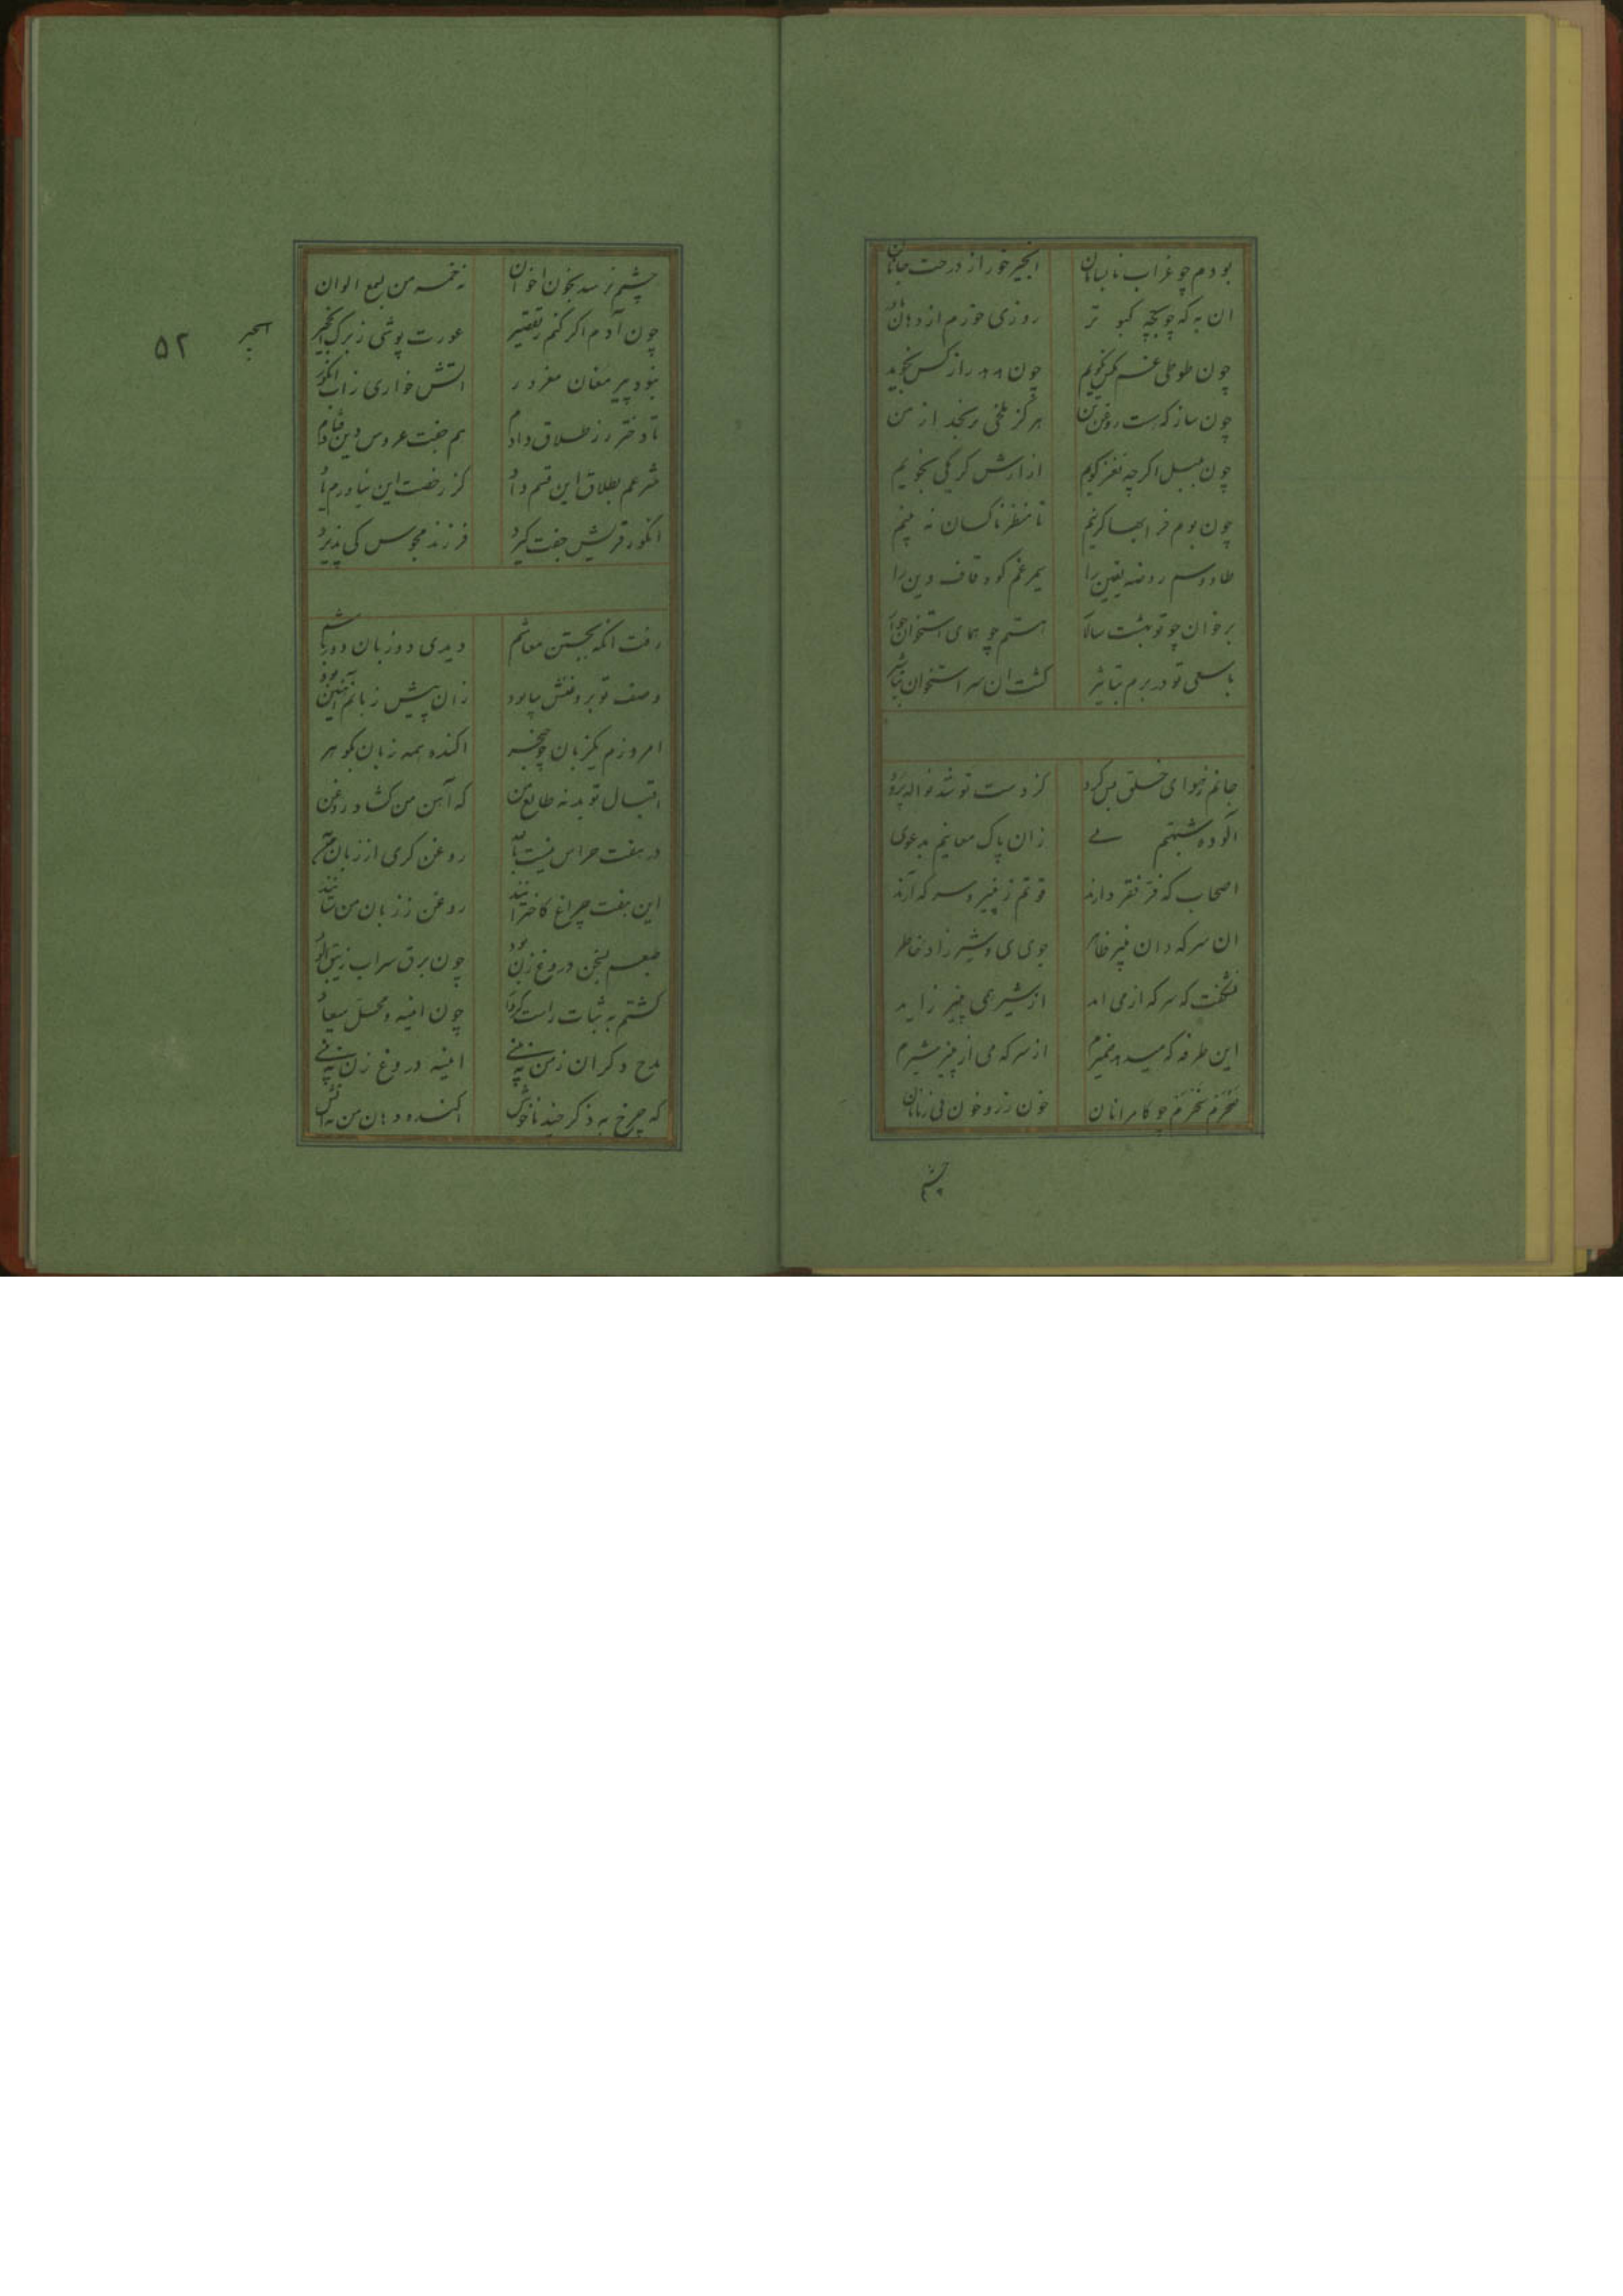 بودم چو غراب نابسامان انجیر خور از درخت جانان
ان به که چو بچه کبوتر روزی خورم از دهان
چون طوطی نکویم چون هدهد راز کس نجوید
چون ساز که هست هرکز تلخی نرنجد از من
چون بلبل اکرچه نغز کویم از ارش کرکی نجویم
چون بوم کزینم تا منظر ناکسان نه بینم
طاووسم روضه یقین را سیمرغم کوه قاف دین را
بر خوان چو تو بهشت سالار هستم چو همای استخوان خوار
با سلمی تو در برم تباشیر کشت ان سر استخوان تباشیر
جانم زنوای خلق بس کرد کز دست تو شد نواله پرورد
آلوده شبهتم نی زان پاک معانیم بدعوی
اصحاب که فر فقر دارند قوتم ز پنیر و سرکه آرند
ان سرکه و ان پنیر ظاهر جوی می و شیر زاد خاطر
نشکفت که سرکه از می اید از شیر همی پنیر زاید
این طرفه که میدهد ضمیرم از سرکه می از پنیر شیرم
می نخورم چو کامرانان خون رز و خون بی زبانان
چشم
چشم نرسد بخون اخوان نه خمسه من لمع الوان
چون آدم اکر کنم تقصیر عورت پوشی ز برک انجیر
نبود پیر مغان مغرور اتش خواری ز اب انکور
تا دختر رز طلاق دادم هم جفت عروس دین فتادم
شرعم بطلاق این قسم داد کز رخصت این نیاورم یاد
انکور قریش جفت کیرد فرزند مجوس کی پذیرد
انجیر ۵۲
رفت انکه بجستن معاشم دیدی دو زبان دورباشم
وصف تو بروغنش بیالود زان پیش زبانم آهنین بود
امروزم یکزبان چو خنجر اکنده همه زبان بکوهر
اقبال تو بد نه طالع من که آهن من کشاد روغن
در هفت خراس نیست روغن کری از زبان
این هفت چراغ کاختر انند روغن ز زبان من ستانند
طبعم بسخن دروغ زن بود چون برق سراب
کشتم به ثبات راست کردار چون اینه و محل
مدح دکران ز من نه بینی اینه دروغ زن نه بینی
که چرخ به ذکر چند ناخوش اکنده دهان من به اتش